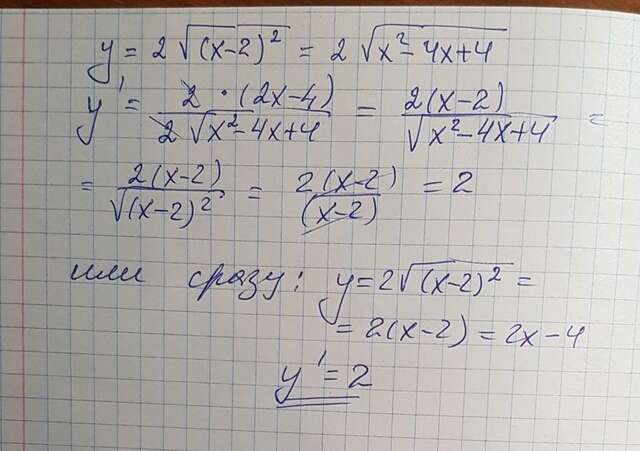 y = 2√(x-2)² = 2√x²-4x+4
y' = 2·(2x-4)/2√x²-4x+4 = 2(x-2)/√x²-4x+4 =
= 2(x-2)/√(x-2)² = 2(x-2)/(x-2) = 2
или сразу: y=2√(x-2)² =
= 2(x-2) = 2x-4
y' = 2